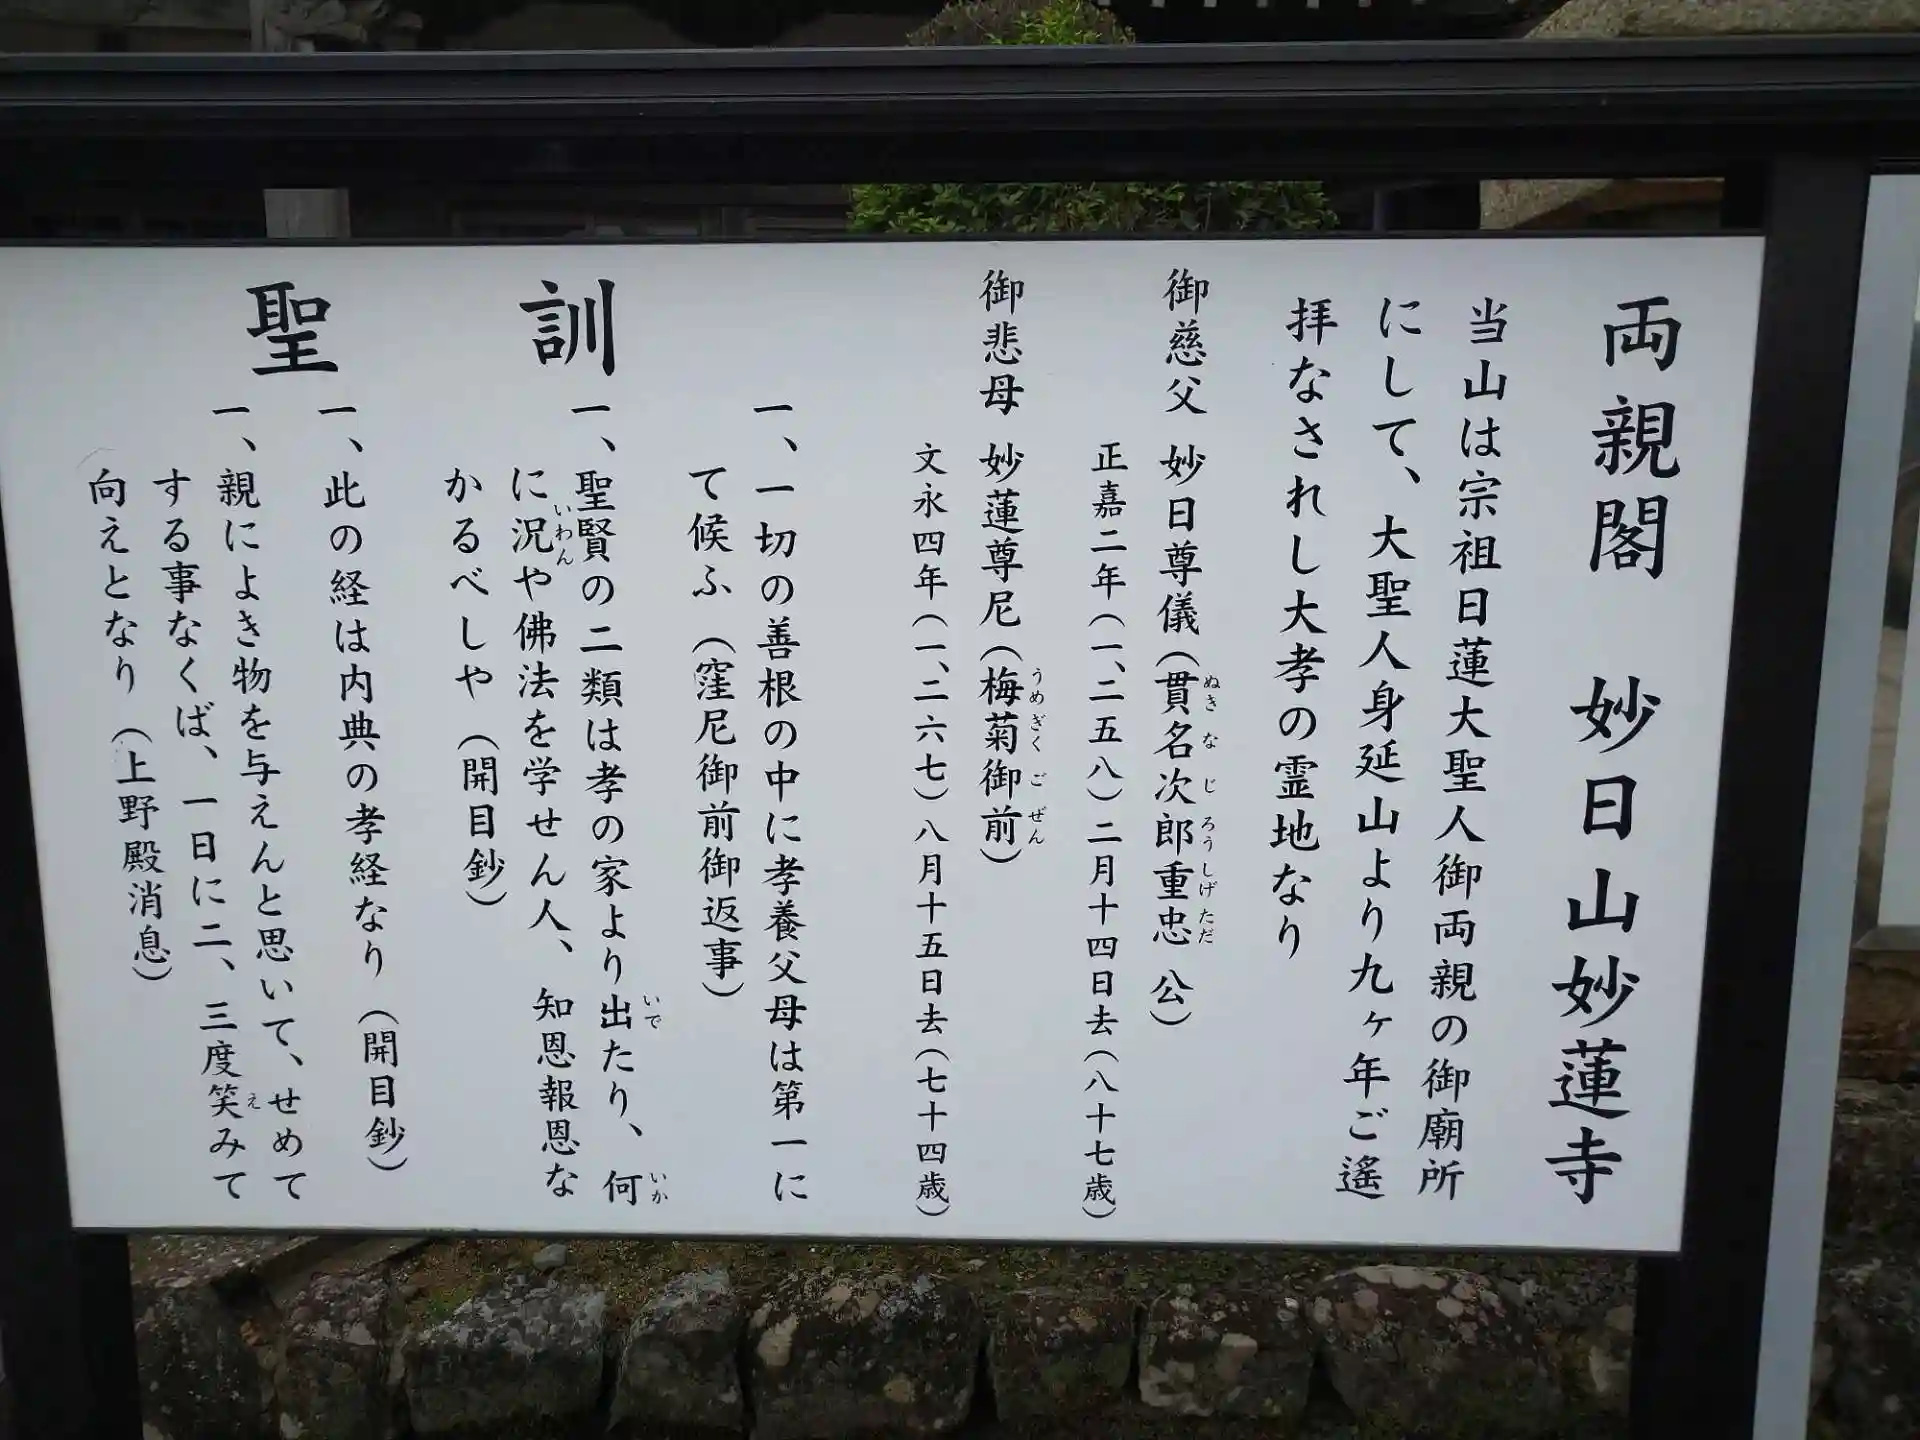 両親閣　妙日山妙蓮寺
当山は宗祖日蓮大聖人御両親の御廟所
にして、大聖人身延山より九ヶ年ご遙
拝なされし大孝の霊地なり
御慈父　妙日尊儀（貫名次郎重忠公）
ぬきなじろうしげただ
正嘉二年（一、二五八）二月十四日去（八十七歳）
御悲母　妙蓮尊尼（梅菊御前）
うめぎくごぜん
文永四年（一、二六七）八月十五日去（七十四歳）
聖訓
一、一切の善根の中に孝養父母は第一に
て候ふ（窪尼御前御返事）
一、聖賢の二類は孝の家より出たり、何
いで　いか
に況や佛法を学せん人、知恩報恩な
いわん
かるべしや（開目鈔）
一、此の経は内典の孝経なり（開目鈔）
一、親によき物を与えんと思いて、せめて
する事なくば、一日に二、三度笑みて
え
向えとなり（上野殿消息）